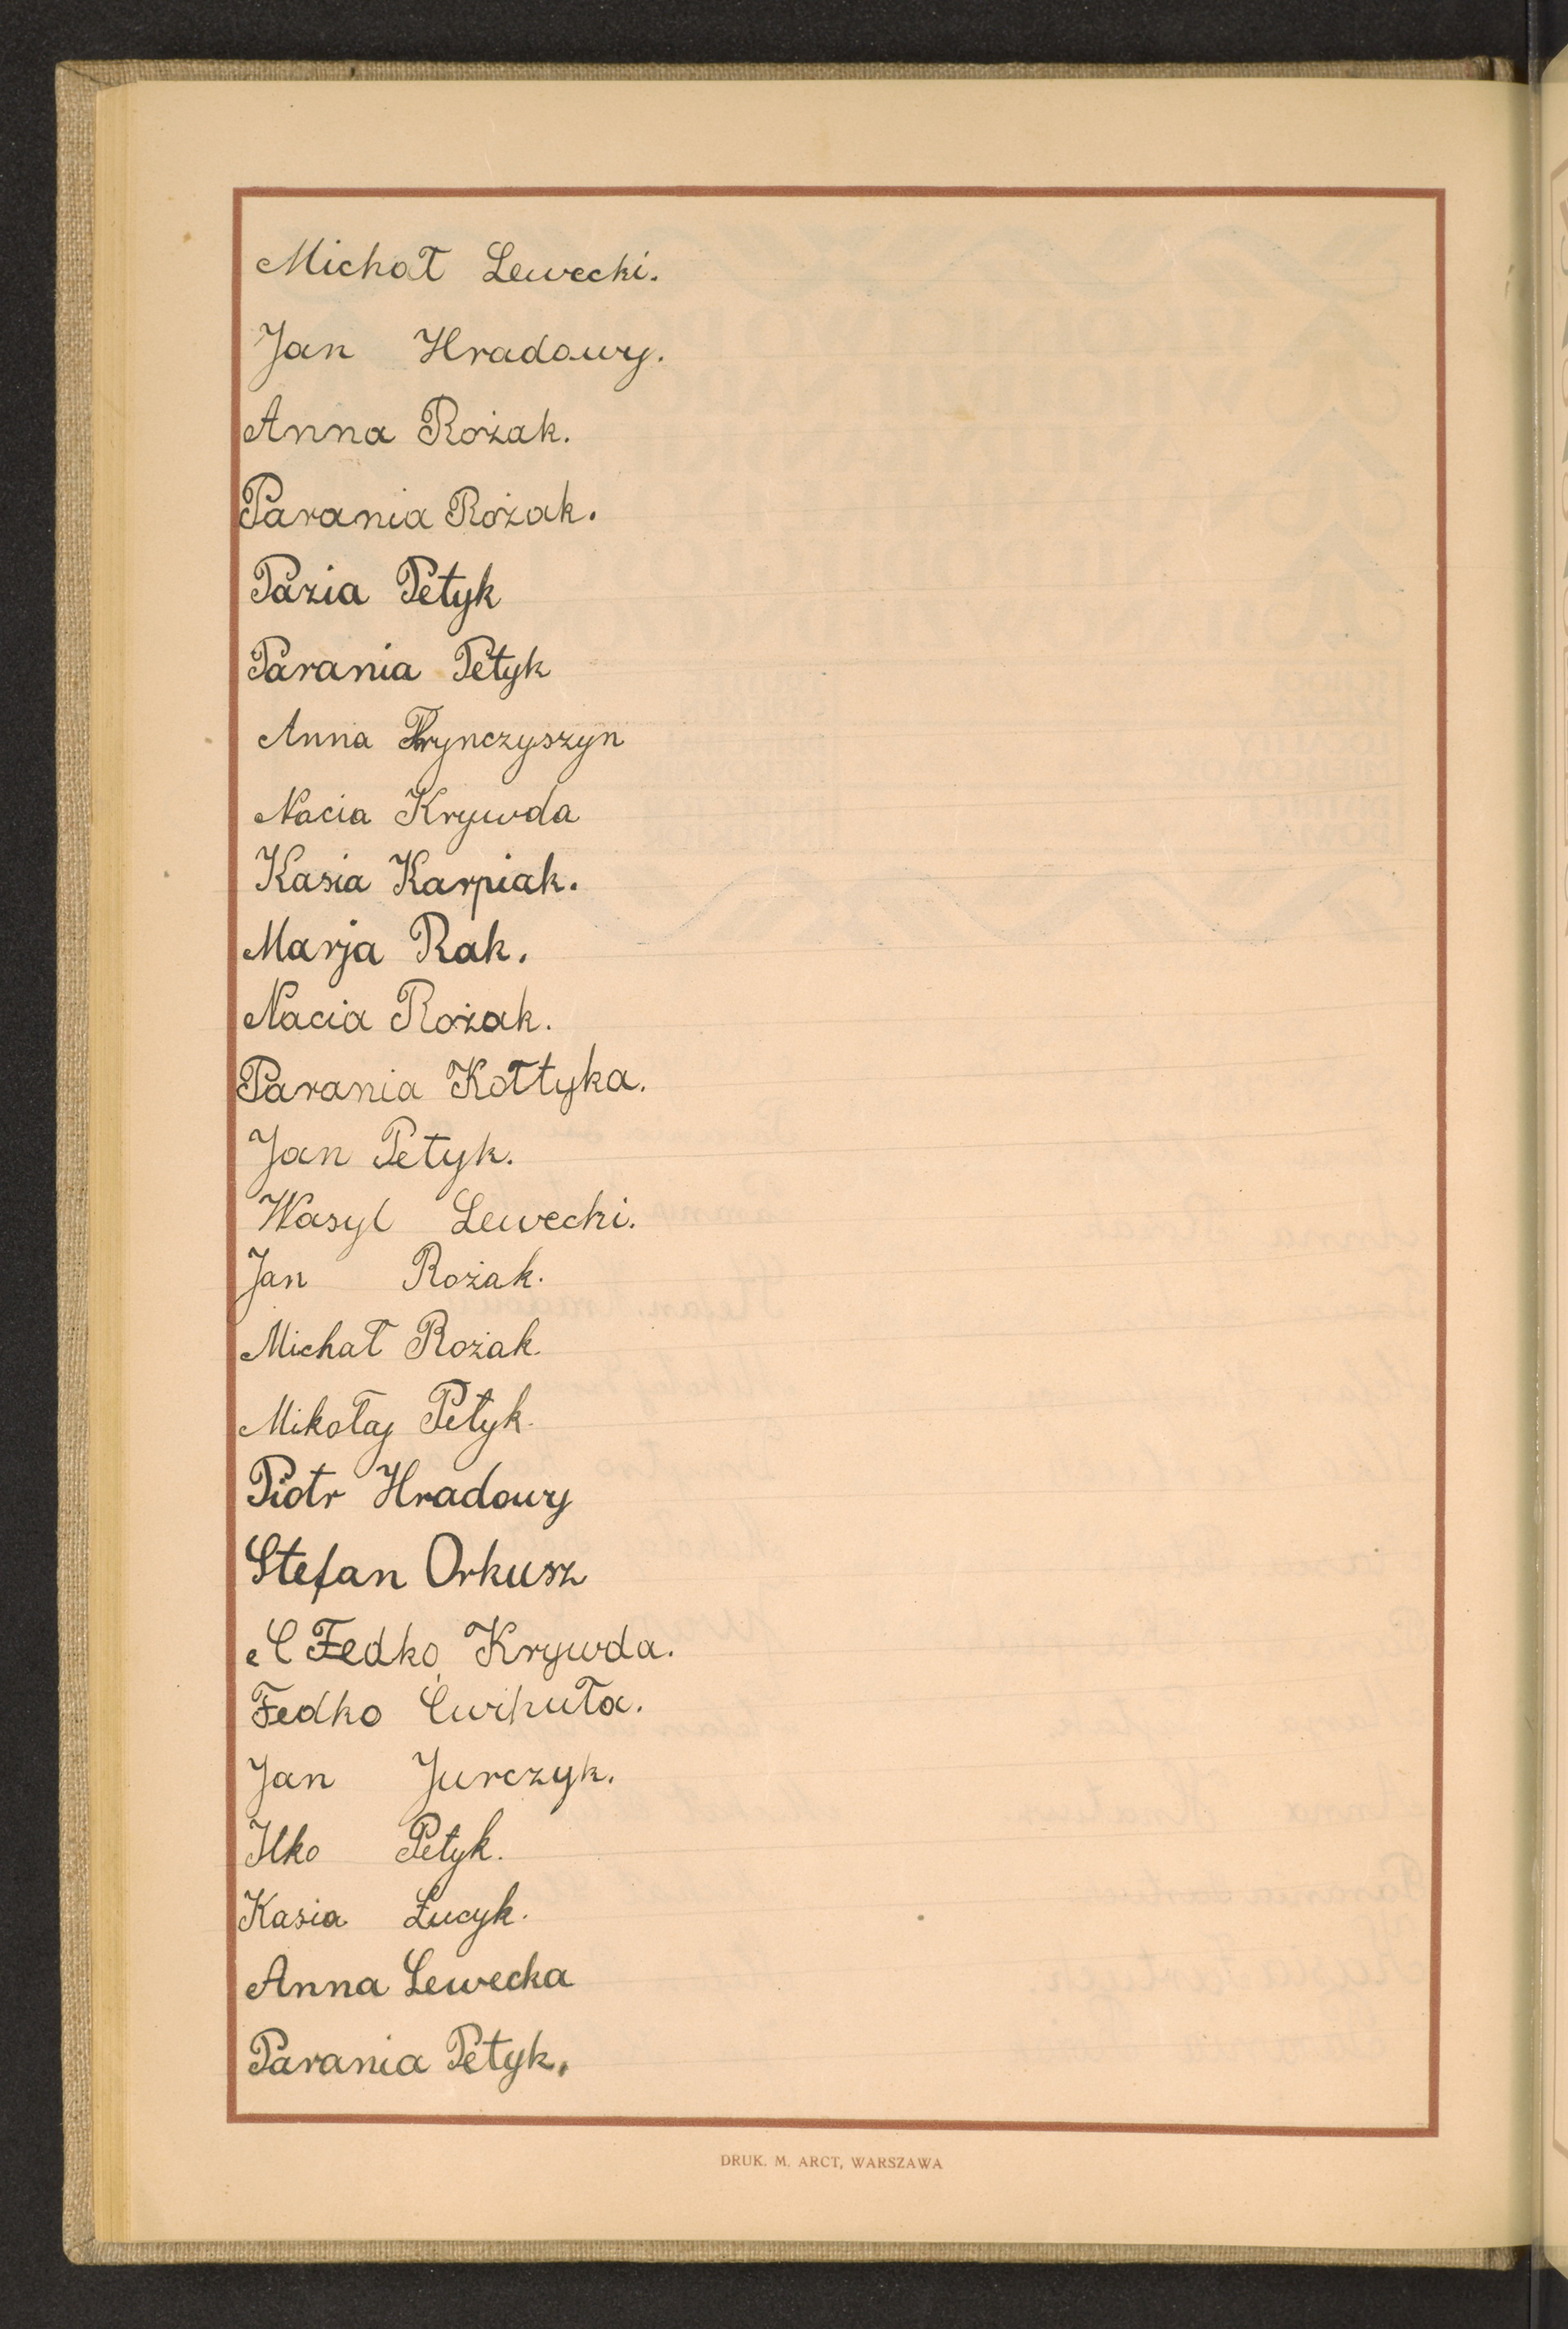 Michoł Lewecki.
Jan Hradowy.
Anna Rożak.
Parania Rożak.
Pazia Petyk
Parania Petyk
Anna Hrynczyszyn
Nacia Krywda
Kasia Karpiak.
Marja Rak.
Nacia Rożak.
Parania Kołtyka.
Jan Petyk.
Wasyl Lewecki.
Jan Rożak.
Michał Rożak.
Mikołaj Petyk.
Piotr Hradowy
Stefan Orkusz
C Fedko Krywda.
Fedko Ćwikuła.
Jan Jurczyk.
Ilko Petyk.
Kasia Łucyk.
Anna Lewecka
Parania Petyk.
DRUK. M. ARCT, WARSZAWA